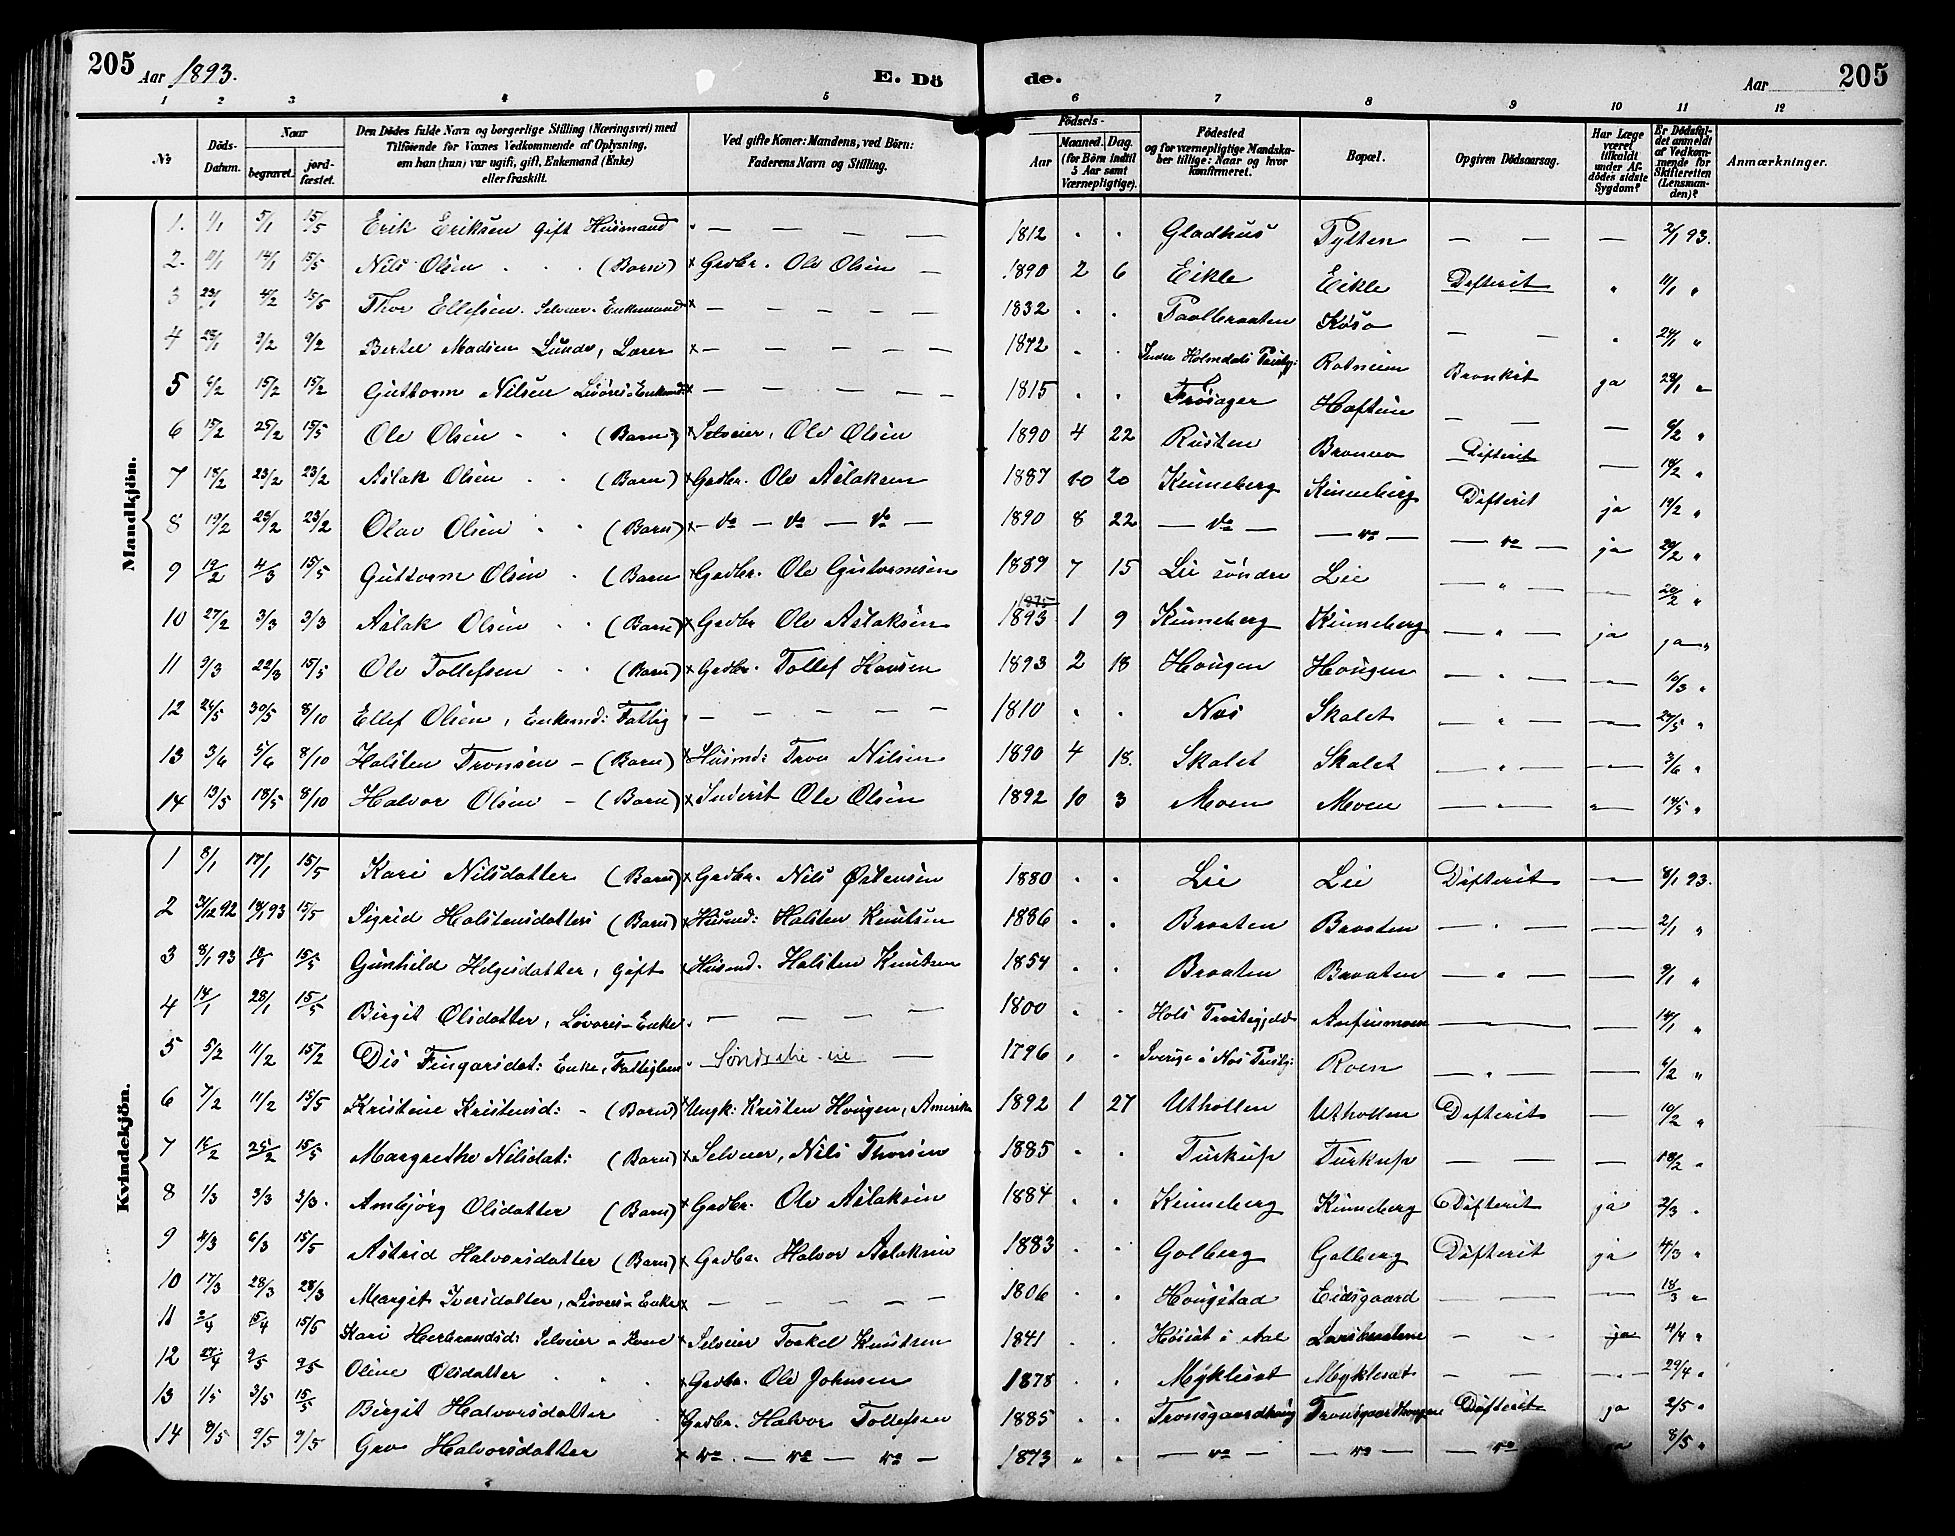 205 Aar 1893. E. Dö de. Aar 205
1 2 3 4 5 6 7 8 9 10 11 12
№ Döds-Datum. Naar begravet. jord-fæstet. Den Dødes fulde Navn og borgerlige Stilling (Næringsvei) med Tilföiende for Voxnes Vedkommende af Oplysning, om han (hun) var ugift, gift, Enkemand (Enke) eller fraskilt. Ved gifte Koner: Mandens, ved Börn: Faderens Navn og Stilling. Födsels- Aar Maaned. Dag. (for Börn indtil 5 Aar samt Værnepligtige). Fødested og for værnepligtige Mandska-ber tillige: Naar og hvor konfirmeret. Bopæl. Opgiven Dödsaarsag. Har Læge været tilkaldt under Af-dödes sidste Sygdom? Er Dödsfal-det anmeldt af Vedkom-mende for Skifteretten (Lensman-den)? Anmærkninger.
Mandkjön.
1. 1/1 5/1 15/5 Erik Eriksen Gift Husmand " — — — — 1812 " " Gladhus Tytten — — — 2/1 93.
2. 11/1 14/1 15/5 Nils Olsen " " (Barn) × Gadbr. Ole Olsen — 1890 2 6 Eikle Eikle Defterit " 11/1 "
3 23/1 4/2 15/5 Thor Ellefsen. Selveier. Enkemand × — — — — — 1832 " " Paalbraaten — — " 24/1 "
4 25/1 9/2 9/2 Bertel Madsen Lunde, Lærer × — — — — — 1872 " " Rotneim Bronkit ja 28/1 "
5 6/2 15/2 15/2 Guttorm Nilsen Livöres Enkemd: × — — — — — 1815 " " Frøsager — — — 6/2 "
6 15/2 25/2 15/5 Ole Olsen " " (Barn) × Selveier, Ole Olsen 1890 4 22 Rusten Defterit — 18/2 "
7 18/2 23/2 23/2 Aslak Olsen " (Barn) × Gadbr. Ole Aslaksen 1887 10 20 Kinneberg Kinneberg Defterit ja 19/2 "
8 19/2 23/2 23/2 Olav Olsen " " (Barn) × — do — do — do — 1890 8 22 — do — — do — — do — ja 20/2 "
9 19/2 4/3 15/5 Guttorm Olsen " (Barn × Gadbr. Ole Gutormsen 1889 7 15 Lie söndre Lie — " — — 20/2 "
10 27/2 3/3 3/3 Aslak Olsen " " (Barn) × Gadbr Ole Aslaksen 1893 1 9 Kinneberg Kinneberg — " — ja ja "
11 9/3 22/3 15/5 Ole Tollefsen " " (Barn) × Gadbr. Tollef Hansen 1893 2 18 Hougen Hougen — " — — 10/3 "
12 24/5 30/5 8/10 Ellef Olsen, Enkemd: Fattig " — — — — — 1810 " " Nes Skalet — " — — 29/5 "
13 3/6 5/6 8/10 Halsten Tronsen — (Barn) × Husmd: Tron Nilsen 1890 4 18. Skalet Skalet — " — — 3/6 "
14 13/5 18/5 8/10 Halvor Olsen — (Barn) × Inderst Ole Olsen 1892 10 3 Moen Moen — " — — 14/5 "
Kvindekjön.
1 8/1 17/1 15/5 Kari Nilsdatter (Barn) × Gadbr. Nils Østensen 1880 " " Lie Lie Defterit — 8/1 93.
2 31/12 92 14/1 93 15/5 Sigrid Halstensdatter (Barn) × Husmd: Halsten Knutsen 1886 " " Braaten Braaten — " — — 2/1 "
3 8/1 93 18/1 15/5 Gunhild Helgesdatter, Gift × Husmd. Halsten Knutsen 1854 " " Braaten Braaten — " — — 9/1 "
4 14/1 28/1 15/5 Birgit Olsdatter, Livöres Enke " — — — — 1800 " " Hols Præstegjeld Anfinmoen — — — 14/1 "
5 5/2 11/2 15/2 Dis Fingarsdat: Enke, Fattiglem " — 1796 " " Sverige i Nes Præstg: Roen — " — — 6/2 "
6 7/2 11/2 15/5 Kristine Kristensd: — (Barn) × Ungk: Kristen Hougen, Amerika 1892 1 27 Uthollen Uthollen Defterit — 10/2 "
7 15/2 25/2 15/5 Margrethe Nilsdat: (Barn) × Selveier, Nils Thorsen 1885 " " Turkup Turkup — — — 18/2 "
8 1/3 3/3 3/3. Ambjörg Olsdatter (Barn) × Gadbr. Ole Aslaksen 1884 " " Kinneberg Kinneberg Defterit ja 2/3 "
9 4/3 6/3 15/5 Astrid Halvorsdatter (Barn) × Gadbr. Halvor Aslaksen 1883 " " Golberg Golberg Defterit ja 4/3 "
10 17/3 28/3 28/3 Margit Iversdatter, Livöres Enke × — — — — — 1806 " " Hougstad Eidsgaard — — — 18/3 "
11 2/4 15/4 15/5 Kari Herbrandsd: Selveier Kone × Selveier Torkel Knutsen 1841 " " Høiset i Aal — — ja 4/4 "
12 27/4 9/5 9/5 Oline Olsdatter " " × Gadbr. Ole Johnsen 1878 " " Myklesat Myklesat — — — 29/4 "
13 1/5 3/5 15/5 Birgit Halvorsdatter " × Gadbr. Halvor Tollefsen 1885 " " Tronsgaardhoug Defterit ja 2/5 "
14 8/5 9/5 9/5 Gro Halvorsdatter × do. — do — do — 1873 " " — do — — do — — do ja 8/5 "